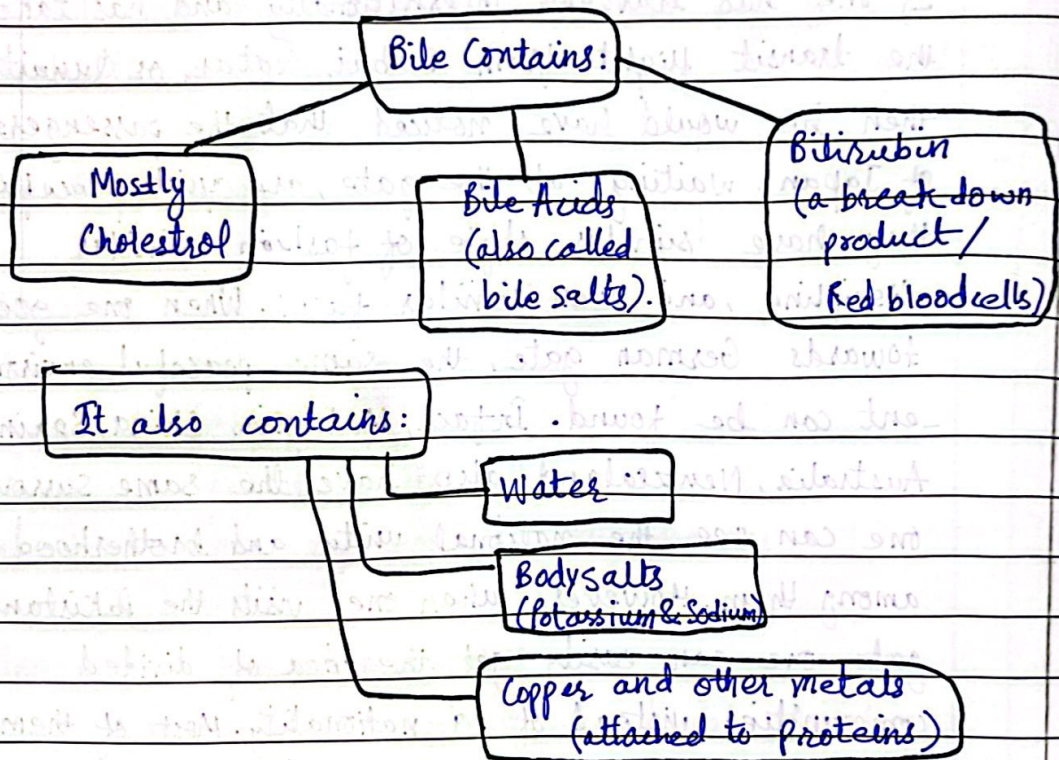 Bile Contains:
Mostly
Cholestrol
Bile Acids
(also called
bile salts).
Bilirubin
(a break down
product/
Red blood cells)
It also contains:
Water
Body salts
(Potassium & Sodium)
Copper and other metals
(attached to proteins)